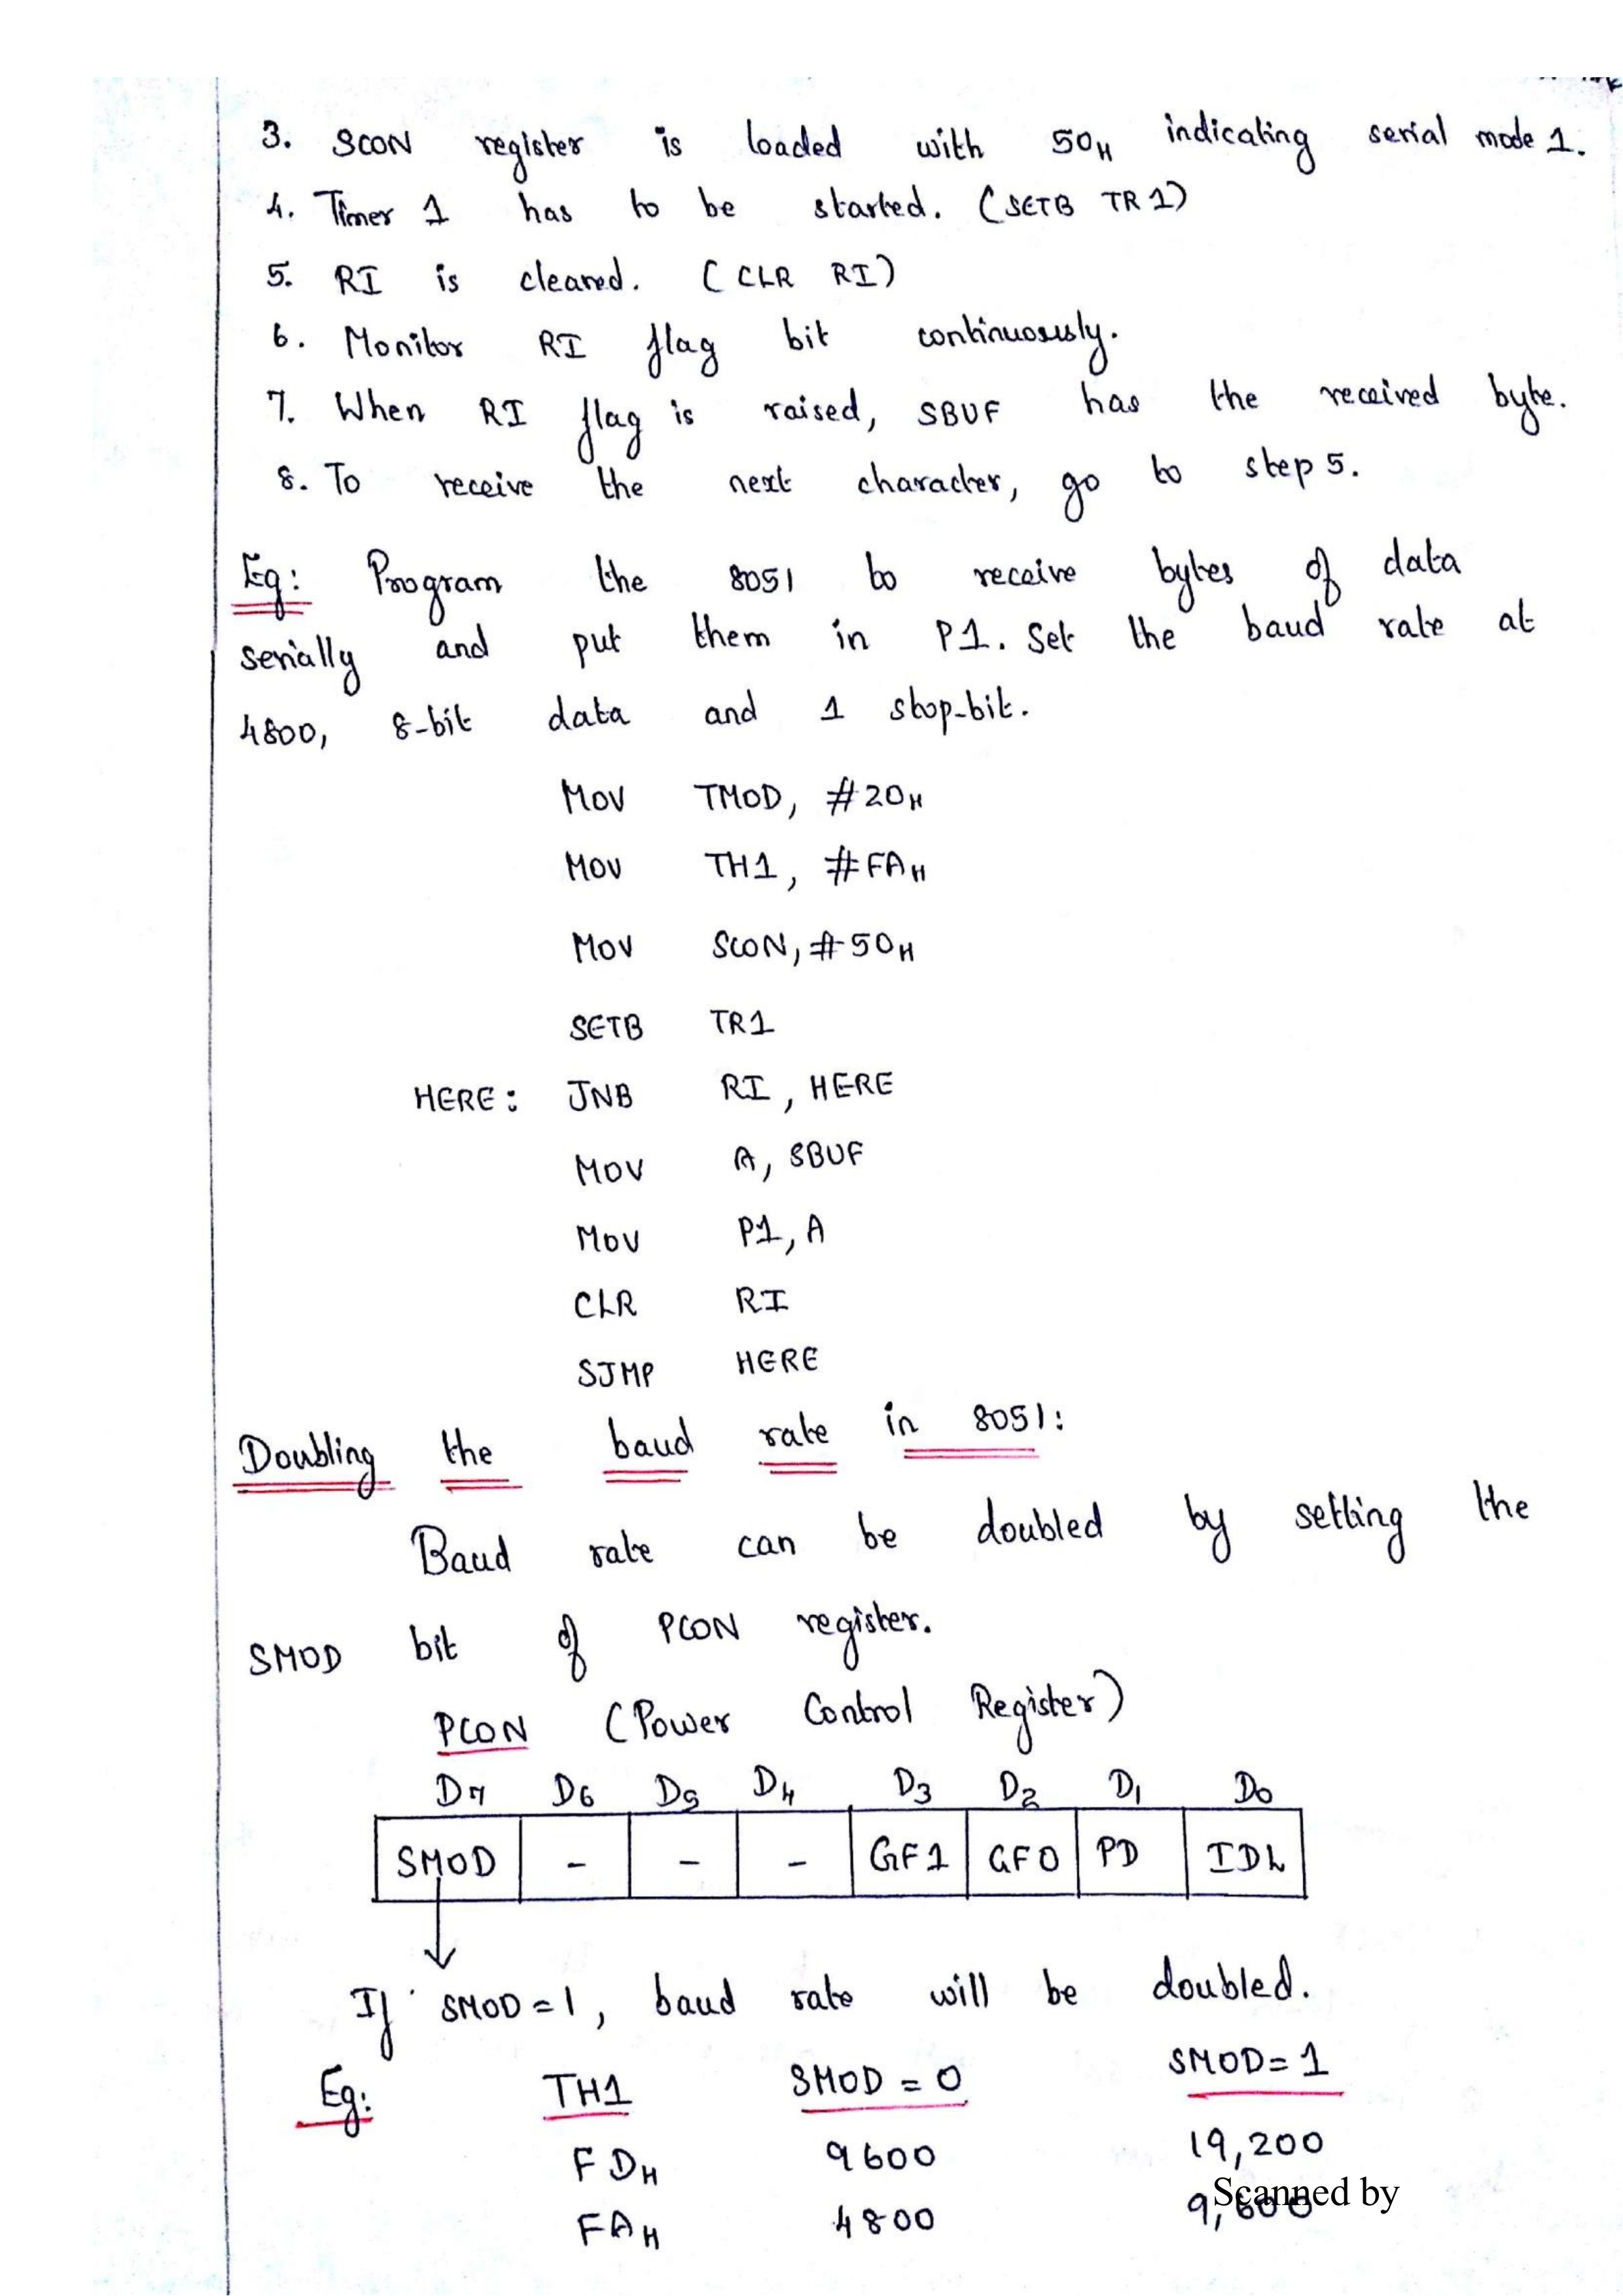 3. SCON register is loaded with 50H indicating serial mode 1.
4. Timer 1 has to be started. (SETB TR1)
5. RI is cleared. (CLR RI)
6. Monitor RI flag bit continuously.
7. When RI flag is raised, SBUF has the received byte.
8. To receive the next character, go to step 5.
Eg: Program the 8051 to receive bytes of data
serially and put them in P1. Set the baud rate at
4800, 8-bit data and 1 stop-bit.
MOV TMOD, #20H
MOV TH1, #FAH
MOV SCON, #50H
SETB TR1
HERE: JNB RI, HERE
MOV A, SBUF
MOV P1, A
CLR RI
SJMP HERE
Doubling the baud rate in 8051:
Baud rate can be doubled by setting the
SMOD bit of PCON register.
PCON (Power Control Register)
D7 D6 D5 D4 D3 D2 D1 D0
SMOD - - - GF1 GF0 PD IDL
If SMOD=1, baud rate will be doubled.
Eg: TH1 SMOD = 0 SMOD = 1
FDH 9600 19,200
FAH 4800 9,600
Scanned by